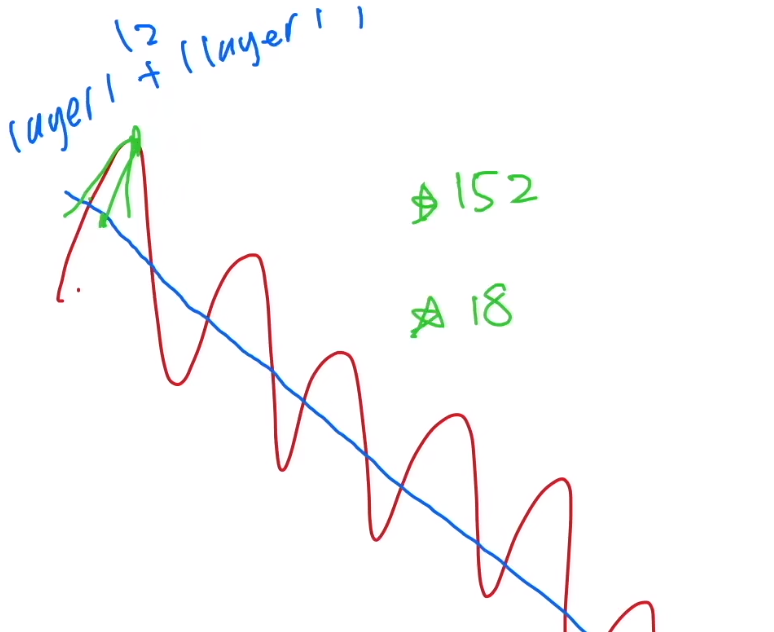 12
layer1 + (layer1)
☆152
☆18